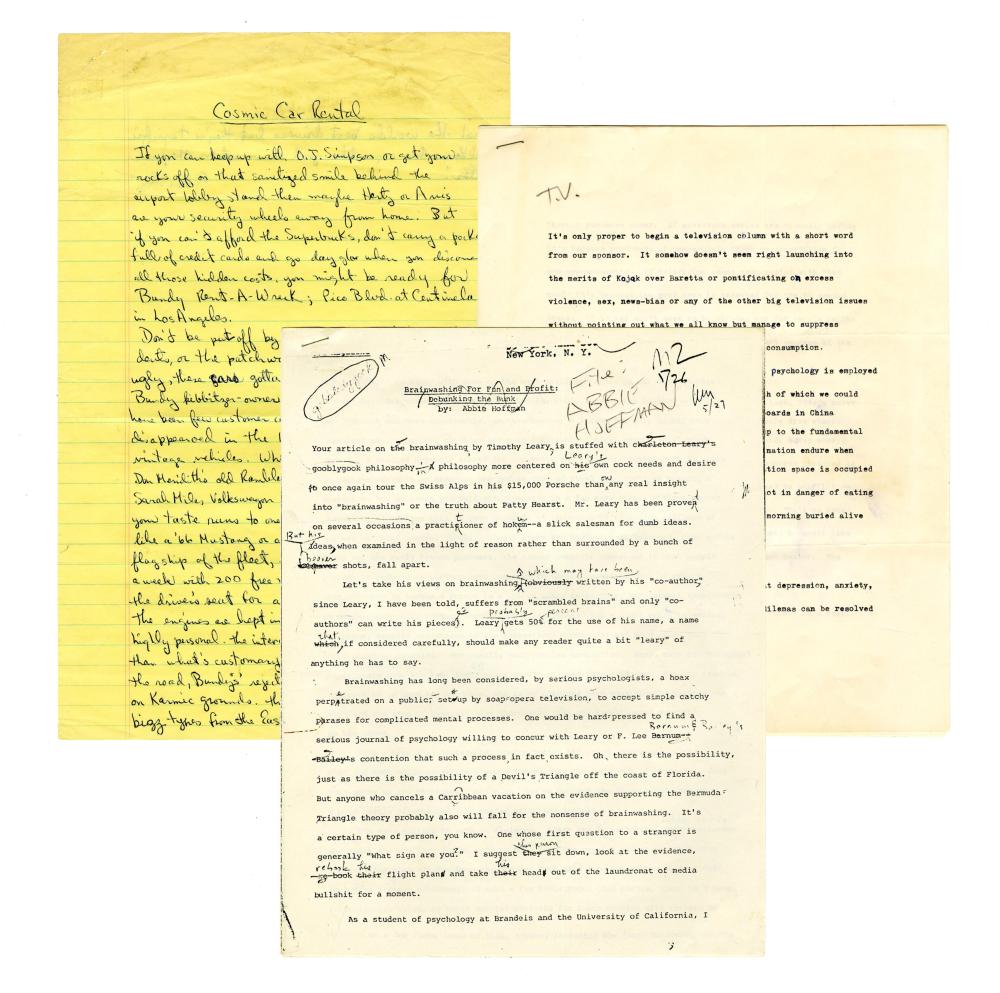 Cosmic Car Rental
If you can keep up with O.J. Simpson or get your
rocks off on that sanitized smile behind the
airport lobby stand then maybe Hertz or Avis
are your security wheels away from home. But
if you can't afford the Superbucks, don't carry a
full of credit cards and go day glow when you
all those hidden costs, you might be ready for
Bundy Rent-A-Wreck; Pico Blvd. at Centinela
in Los Angeles.
Don't be put off by
or the
ugly, these gotta
Bundy kibbitzer-owner
have been few customer
disappeared in the
vintage vehicles.
the old
Sarah Miles, Volkswagon
your taste runs to
like a '66 Mustang or a
flagship of the fleet,
a week with 200 free
the driver's seat for a
the engines are kept in
highly personal. the
than what's customary
the road, Bundys'
on Karmic grounds.
from the
T.V.
It's only proper to begin a television column with a short word
from our sponsor. It somehow doesn't seem right launching into
the merits of Kojak over Baretta or pontificating on excess
violence, sex, news-bias or any of the other big television issues
without pointing out what we all know but manage to suppress
consumption.
psychology is employed
h of which we could
oards in China
p to the fundamental
nation endure when
tion space is occupied
ot in danger of eating
morning buried alive
t depression, anxiety,
ilemas can be resolved
New York, N. Y.
gobbledygook
M2
5/26
5/27
File:
ABBIE
HOFFMAN
Brainwashing For Fun and Profit:
Debunking the Bunk
by: Abbie Hoffman
Your article on the brainwashing by Timothy Leary, is stuffed with charleton Leary's
Leary's
gooblygook philosophy in philosophy more centered on his own cock needs and desire
to once again tour the Swiss Alps in his $15,000 Porsche than any real insight
into "brainwashing" or the truth about Patty Hearst. Mr. Leary has been proven
on several occasions a practitioner of hokem--a slick salesman for dumb ideas.
But his
ideas, when examined in the light of reason rather than surrounded by a bunch of
shots, fall apart.
which may have been
Let's take his views on brainwashing (obviously written by his "co-author,"
since Leary, I have been told, suffers from "scrambled brains" and only "co-
probably percent
authors" can write his pieces). Leary gets 50% for the use of his name, a name
that,
which, if considered carefully, should make any reader quite a bit "leary" of
anything he has to say.
Brainwashing has long been considered, by serious psychologists, a hoax
perpetrated on a public, set up by soap opera television, to accept simple catchy
phrases for complicated mental processes. One would be hard-pressed to find a
Barnum & Bailey's
serious journal of psychology willing to concur with Leary or F. Lee Barnum--
Bailey's contention that such a process, in fact, exists. Oh, there is the possibility,
just as there is the possibility of a Devil's Triangle off the coast of Florida.
But anyone who cancels a Carribbean vacation on the evidence supporting the Bermuda
Triangle theory probably also will fall for the nonsense of brainwashing. It's
a certain type of person, you know. One whose first question to a stranger is
this person
generally "What sign are you?" I suggest they sit down, look at the evidence,
rebook his his
book their flight plans and take their heads out of the laundromat of media
bullshit for a moment.
As a student of psychology at Brandeis and the University of California, I